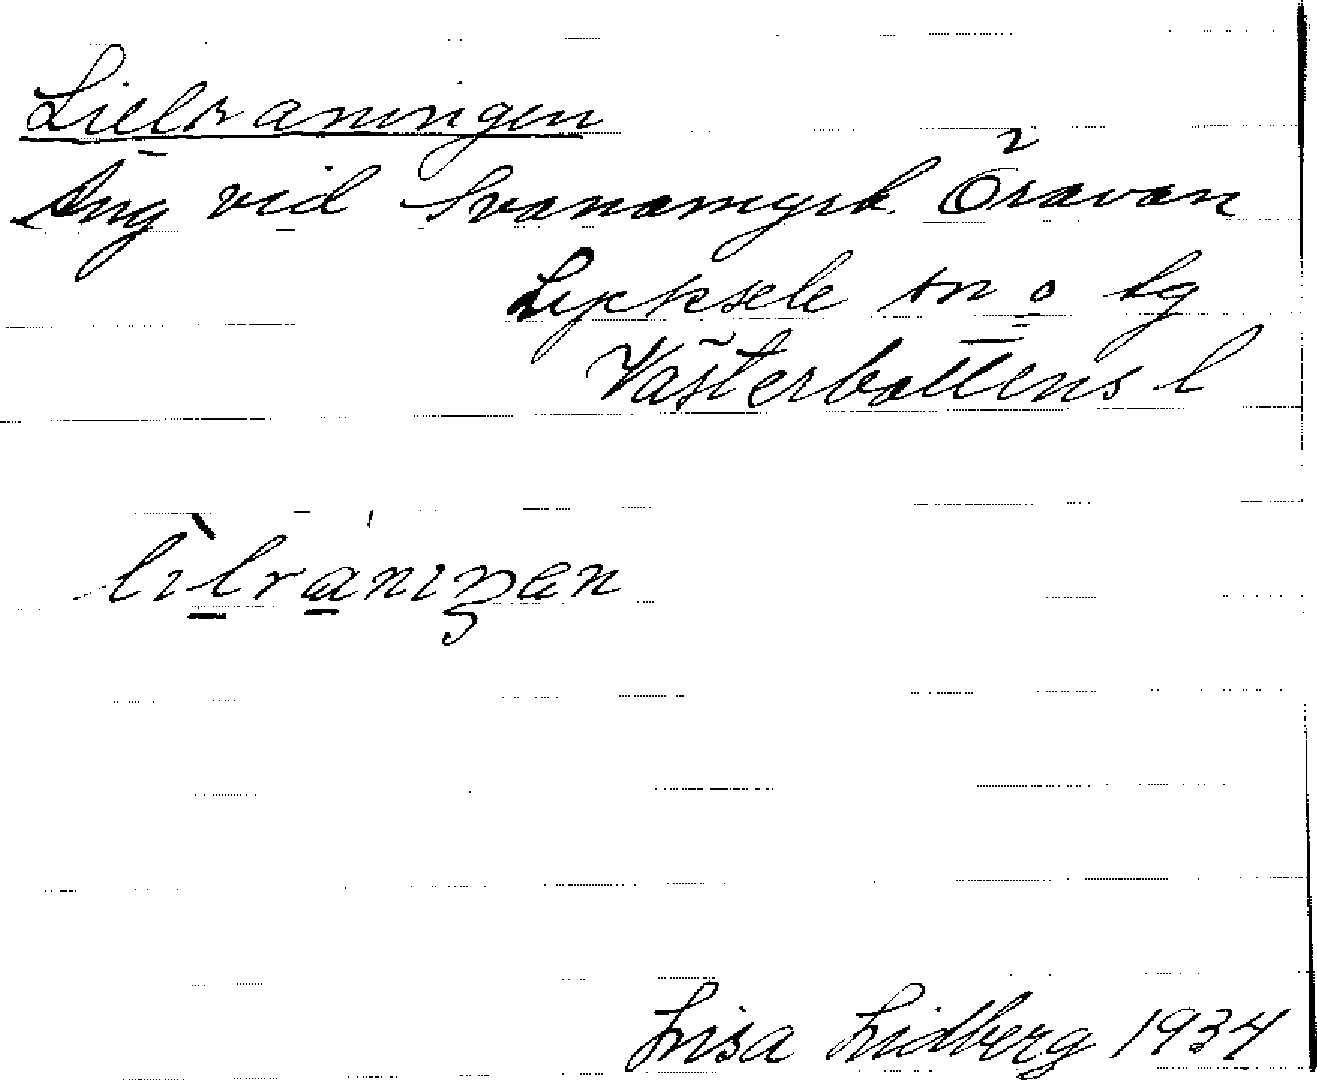 Lielraningen
Äng vid Svanamyrk. Öravan
Lycksele sn o lg
Västerbottens l
lìlrániŋen
Lisa Lidberg 1934